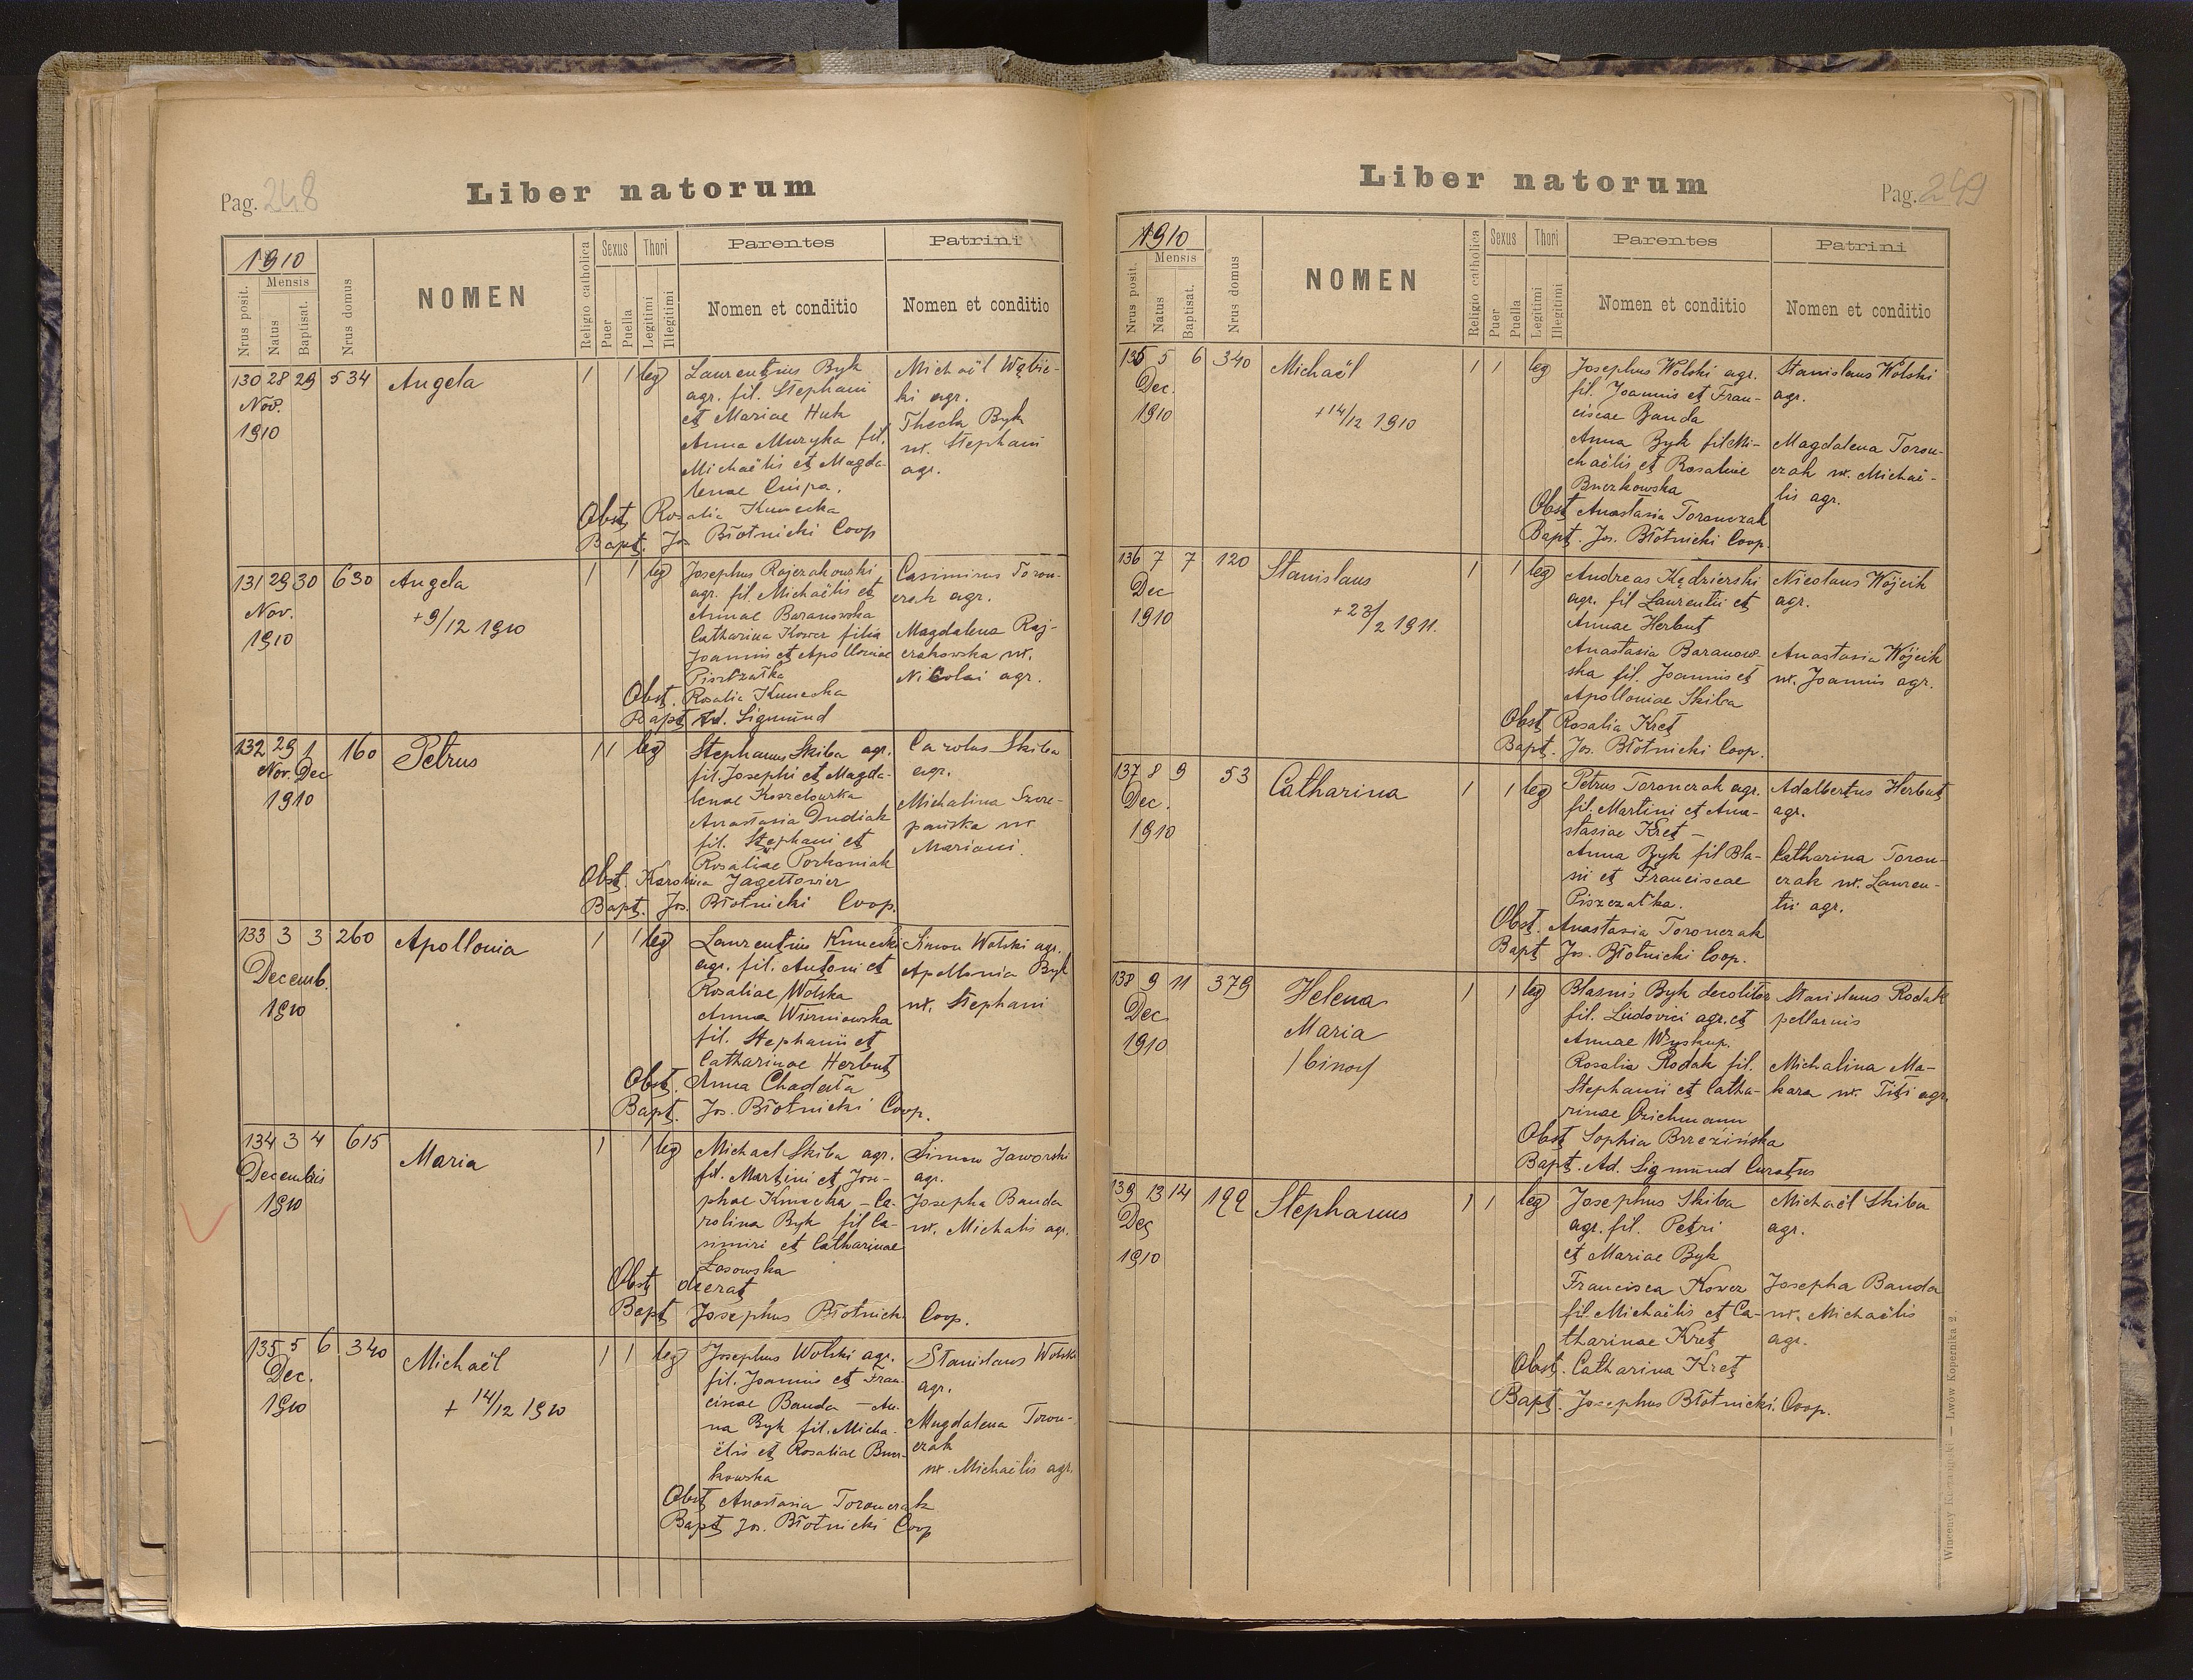 Pag. 248
Liber natorum
1910
Mensis
Nrus posit.
Natus
Baptisat.
Nrus domus
NOMEN
Religio catholica
Sexus
Puer
Puella
Thori
Legitimi
Illegitimi
Parentes
Nomen et conditio
Patrini
Nomen et conditio
130 28 29 534 Angela 1 1 leg
Nov.
1910
Laurentius Byk
agr. fil. Stephani
et Mariae Huk
Anna Muzyka fil.
Michaëlis et Magda-
lenae Ciupa.
Michaël Wąbic-
ki agr.
Thecla Byk
ux. Stephani
agr.
Obst. Rosalia Kunecka
Bapt. Jos. Błotnicki Coop
131 29 30 630 Angela 1 1 leg
Nov.
1910
+ 9/12 1910
Josephus Rajczakowski
agr. fil. Michaëlis et
Annae Baranowska
Catharina Kower filia
Joannis et Apolloniae
Piszczatka
Casimirus Toron-
czak agr.
Magdalena Raj-
czakowska ux.
Nicolai agr.
Obst. Rosalia Kunecka
Bapt. Ad. Sigmund
132 29 1 160 Petrus 1 1 leg
Nov. Dec
1910
Stephanus Skiba agr.
fil. Josephi et Magda-
lenae
Anastasia Dudiak
fil. Stephani et
Rosaliae Porkoniak
Carolus Skiba
agr.
Michalina Szcze-
pańska ux
Mariani.
Obst. Karolina Jagełłowicz
Bapt. Jos. Błotnicki Coop.
133 3 3 260 Apollonia 1 1 leg
Decemb.
1910
Laurentius Kunecki
agr. fil. Antoni et
Rosaliae Wolska
Anna Wierniowska
fil. Stephanii et
Catharinae Herbut
Simon Wolski agr.
Apollonia Byk
ux. Stephani
Obst. Anna Chadała
Bapt. Jos. Błotnicki Coop.
134 3 4 615 Maria 1 1 leg
Decembris
1910
Michael Skiba agr.
fil. Martini et Jose-
phae Kunecka - Ca-
rolina Byk fil Ca-
simiri et Catharinae
Łasowska
Simon Jaworski
agr.
Josepha Banda
ux. Michalis agr.
Obst. deerat
Bapt Josephus Błotnicki Coop.
135 5 6 340 Michaël 1 1 leg
Dec.
1910
+ 14/12 1910
Josephus Wolski agr.
fil. Joannis et Fran-
ciscae Banda - An-
na Byk fil. Micha-
ëlis et Rosaliae Bucz-
kowska
Stanislaus Wolski
agr.
Magdalena Toron-
czak
ux. Michaëlis agr.
Obst Anastasia Toronczak
Bapt Jos. Błotnicki Coop
Liber natorum
Pag. 249
1910
Mensis
Nrus posit.
Natus
Baptisat.
Nrus domus
NOMEN
Religio catholica
Sexus
Puer
Puella
Thori
Legitimi
Illegitimi
Parentes
Nomen et conditio
Patrini
Nomen et conditio
135 5 6 340 Michaël 1 1 leg
Dec.
1910
+ 14/12 1910
Josephus Wolski agr.
fil. Joannis et Fran-
ciscae Banda
Anna Byk fil Mi-
chaëlis et Rosaliae
Buczkowska
Stanislaus Wolski
agr.
Magdalena Toron-
czak ux. Michaë-
lis agr.
Obst Anastasia Toronczak
Bapt. Jos. Błotnicki Coop.
136 7 7 120 Stanislaus 1 1 leg
Dec
1910
+ 23/2 1911.
Andreas Kędzierski
agr. fil Laurentii et
Annae Herbut
Anastasia Baranow-
ska fil. Joannis et
Apolloniae Skiba
Nicolaus Wójcik
agr.
Anastasia Wójcik
ux. Joannis agr.
Obst Rosalia Kret
Bapt. Jos. Błotnicki Coop.
137 8 9 53 Catharina 1 1 leg
Dec.
1910
Petrus Toronczak agr.
fil. Martini et Ana-
stasiae Kret -
Anna Byk fil Bla-
sii et Franciscae
Piszczatka.
Adalbertus Herbut
agr.
Catharina Toron-
czak ux. Lauren-
tii agr.
Obst. Anastasia Toronczak
Bapt Jos. Błotnicki Coop.
138 9 11 379 Helena 1 1 leg
Dec
1910
Maria
/binom/
Blasius Byk decolitor
fil. Ludovici agr. et
Annae Wyskup.
Rosalia Rodak fil.
Stephanii et Catha-
rinae
Stanislaus Rodak
pellarius
Michalina Ma-
kara ux. Titi agr.
Obst Sophia Brzezińska
Bapt. Ad. Sigmund Curatus
139 13 14 199 Stephanus 1 1 leg
Dec
1910
Josephus Skiba
agr. fil. Petri
et Mariae Byk
Francisca Kower
fil. Michaëlis et Ca-
tharinae Kret
Michaël Skiba
agr.
Josepha Banda
ux. Michaëlis
agr.
Obst. Catharina Kret
Bapt. Josephus Błotnicki. Coop.
Lwów Kopernika 2.